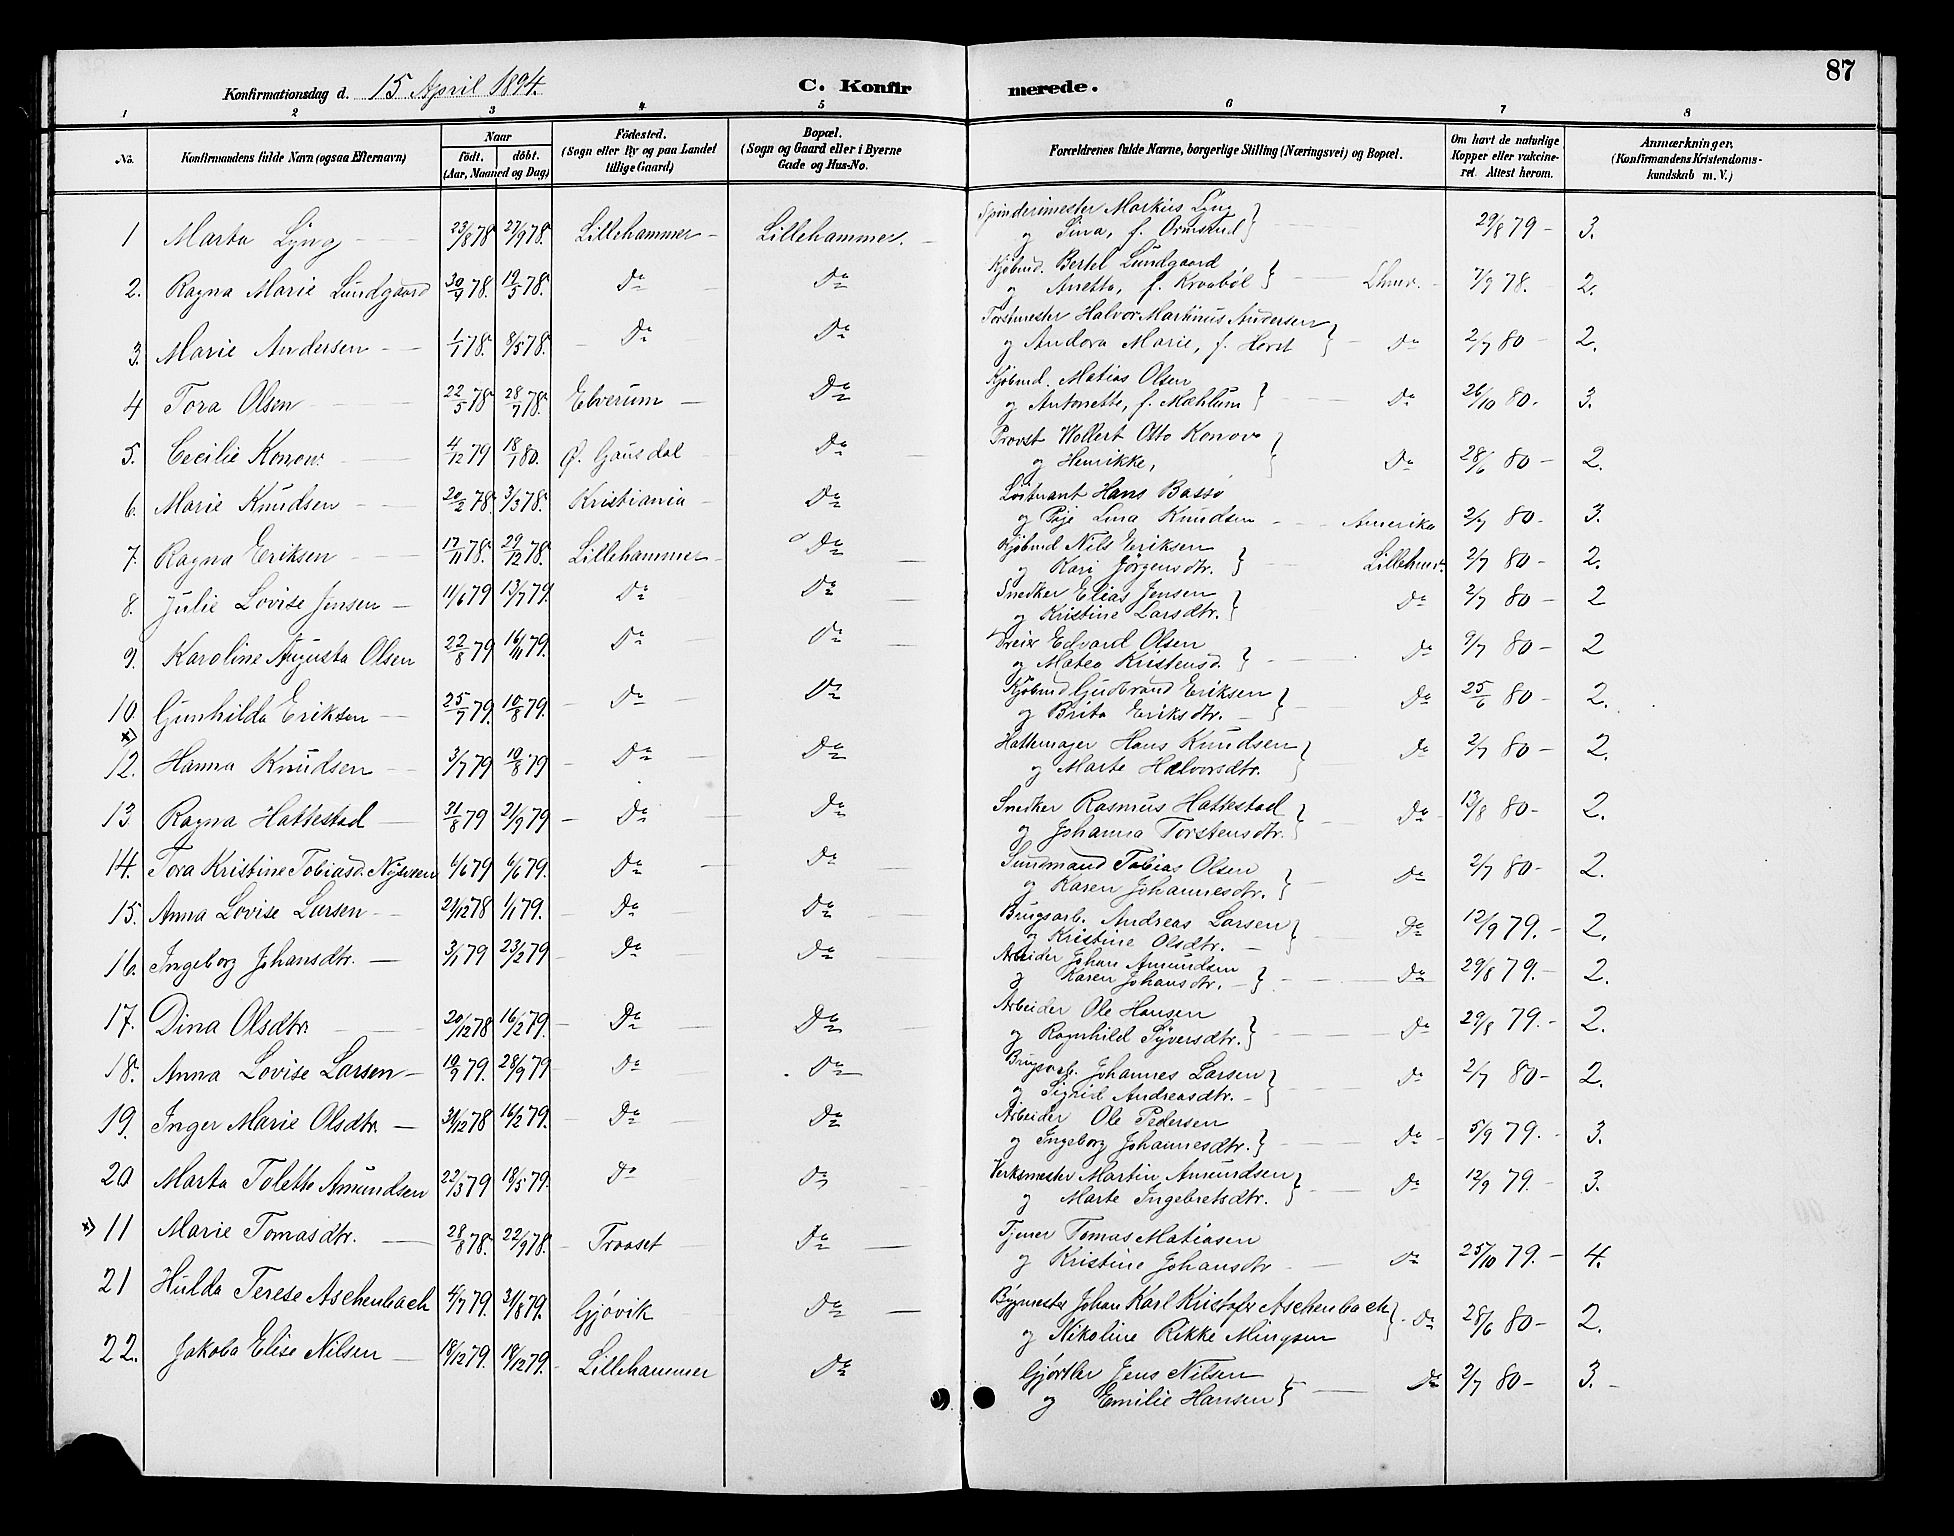 87
Konfirmationsdag d. 15 April 1894. C. Konfirmerede.
1 2 3 4 5 6 7 8
No. Konfirmandens fulde Navn (ogsaa Efternavn) Naar født. døbt. (Aar, Maaned og Dag) Fødested. (Sogn eller By og paa Landet tillige Gaard) Bopæl. (Sogn og Gaard eller i Byerne Gade og Hus-No. Forældrenes fulde Navne, borgerlige Stilling (Næringsvei) og Bopæl. Om havt de naturlige Kopper eller vakcineret. Attest herom. Anmærkninger. (Konfirmandens Kristendomskundskab m. V.)
1 Marta Lyng 23/8 78 27/9 78. Lillehammer Lillehammer. Spinderimester Markus Lyng
og Sina, f. Ormstad 29/8 79 3.
2. Ragna Marie Lundgaard 30/4 78. 19/5 78. Do Do Kjøbmd. Bertel Lundgaard
og Anetta, f. Kraabøl Lhmr. 7/9 78. 2.
3. Marie Andersen 1/1 78. 8/5 78. Do Do Forstmester Halvor Martinus Andersen
og Andora Marie, f. Horst Do 2/7 80 2.
4 Tora Olsen 22/5 78 28/7 78. Elverum Do Kjøbmd. Matias Olsen
og Antonette, f. Mæhlum Do 26/10 80. 3.
5. Cecilie Konow. 4/12 79 18/1 80. Ø. Gausdal Do Provst Wollert Otto Konow
og Henrikke, Do 28/6 80 2.
6. Marie Knudsen 20/2 78. 3/3 78. Kristiania Do Løitnant Hans Basso
og Pige Lina Knudsen Amerika 2/7 80 3.
7. Ragna Eriksen 17/11 78. 29/12 78. Lillehammer Do Kjøbmd Nils Eriksen
og Kari Jørgensdtr. Lillehmr. 2/7 80 2.
8. Julie Lovise Jensen 11/6 79 13/7 79. Do Do Snedker Elias Jensen
og Kristine Larsdtr. Do 2/7 80 2
9. Karoline Augusta Olsen 22/8 79 16/11 79. Do Do Dreier Edvard Olsen
og Matea Kristensd. Do 9/7 80 2
10 Gunhilda Eriksen 25/7 79. 10/8 79. Do Do Kjøbmd Gudbrand Eriksen
og Brita Eriksdtr. Do 25/6 80 2.
x)
12. Hanna Knudsen 3/7 79 10/8 79 Do Do Hattemager Hans Knudsen
og Marte Halvorsdtr. Do 2/7 80 2.
13 Ragna Hattestad 31/8 79 21/9 79 Do Do Snedker Rasmus Hattestad
og Johanna Torstensdtr. Do 13/8 80 2.
14. Tora Kristine Tobiasd. Nysveen 6/6 79 6/6 79. Do Do Sundmand Tobias Olsen
og Karen Johannesdtr. Do 2/7 80 2.
15. Anna Lovise Larsen 21/12 78 1/1 79. Do Do Brugsarb. Andreas Larsen
og Kristine Olsdtr. Do 12/9 79. 2.
16. Ingeborg Johansdtr. 3/1 79 23/2 79 Do Do Arbeider Johan Amundsen
og Karen Johansdtr. Do 29/8 79. 2.
17. Dina Olsdtr. 20/12 78 16/2 79. Do Do Arbeider Ole Hansen
og Ragnhild Syversdtr. Do 29/8 79. 2.
18. Anna Lovise Larsen 10/9 79. 28/9 79 Do Do Brugsarb. Johannes Larsen
og Sigrid Andreasdtr. Do 2/7 80 2.
19. Inger Marie Olsdtr. 31/12 78 16/2 79. Do Do Arbeider Ole Pedersen
og Ingeborg Johannesdtr. Do 5/9 79. 3.
20 Marta Tolette Amundsen 22/3 79 18/5 79. Do Do Verksmester Martin Amundsen
og Marte Ingebretsdtr. Do 12/9 79. 3.
x) 11 Marie Tomasdtr. 28/8 78. 22/9 78. Traaset Do Tjener Tomas Matiasen
og Kristine Johansdtr Do 25/10 79. 4.
21 Hulda Terese Aschenbach 4/7 79. 31/8 79. Gjøvik Do Bygmester Johan Karl Kristofer Aschenbach
og Nikoline Rikke Mingsen Do 28/6 80 2.
22. Jakoba Elise Nilsen 18/12 79. 19/12 79. Lillehammer Do Gjørtler Jens Nilsen
og Emilie Hansen Do 2/7 80 3.